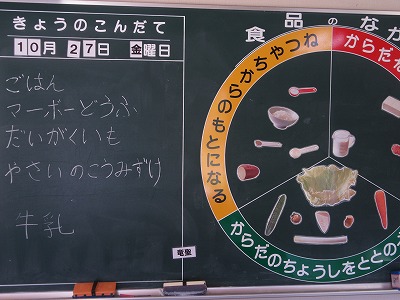 きょうのこんだて
10月27日 金曜日
ごはん
マーボーどうふ
だいがくいも
やさいのこうみづけ
牛乳
食品のなか
からだを
ちからやねつ
のもとになる
からだのちょうしをととのえ